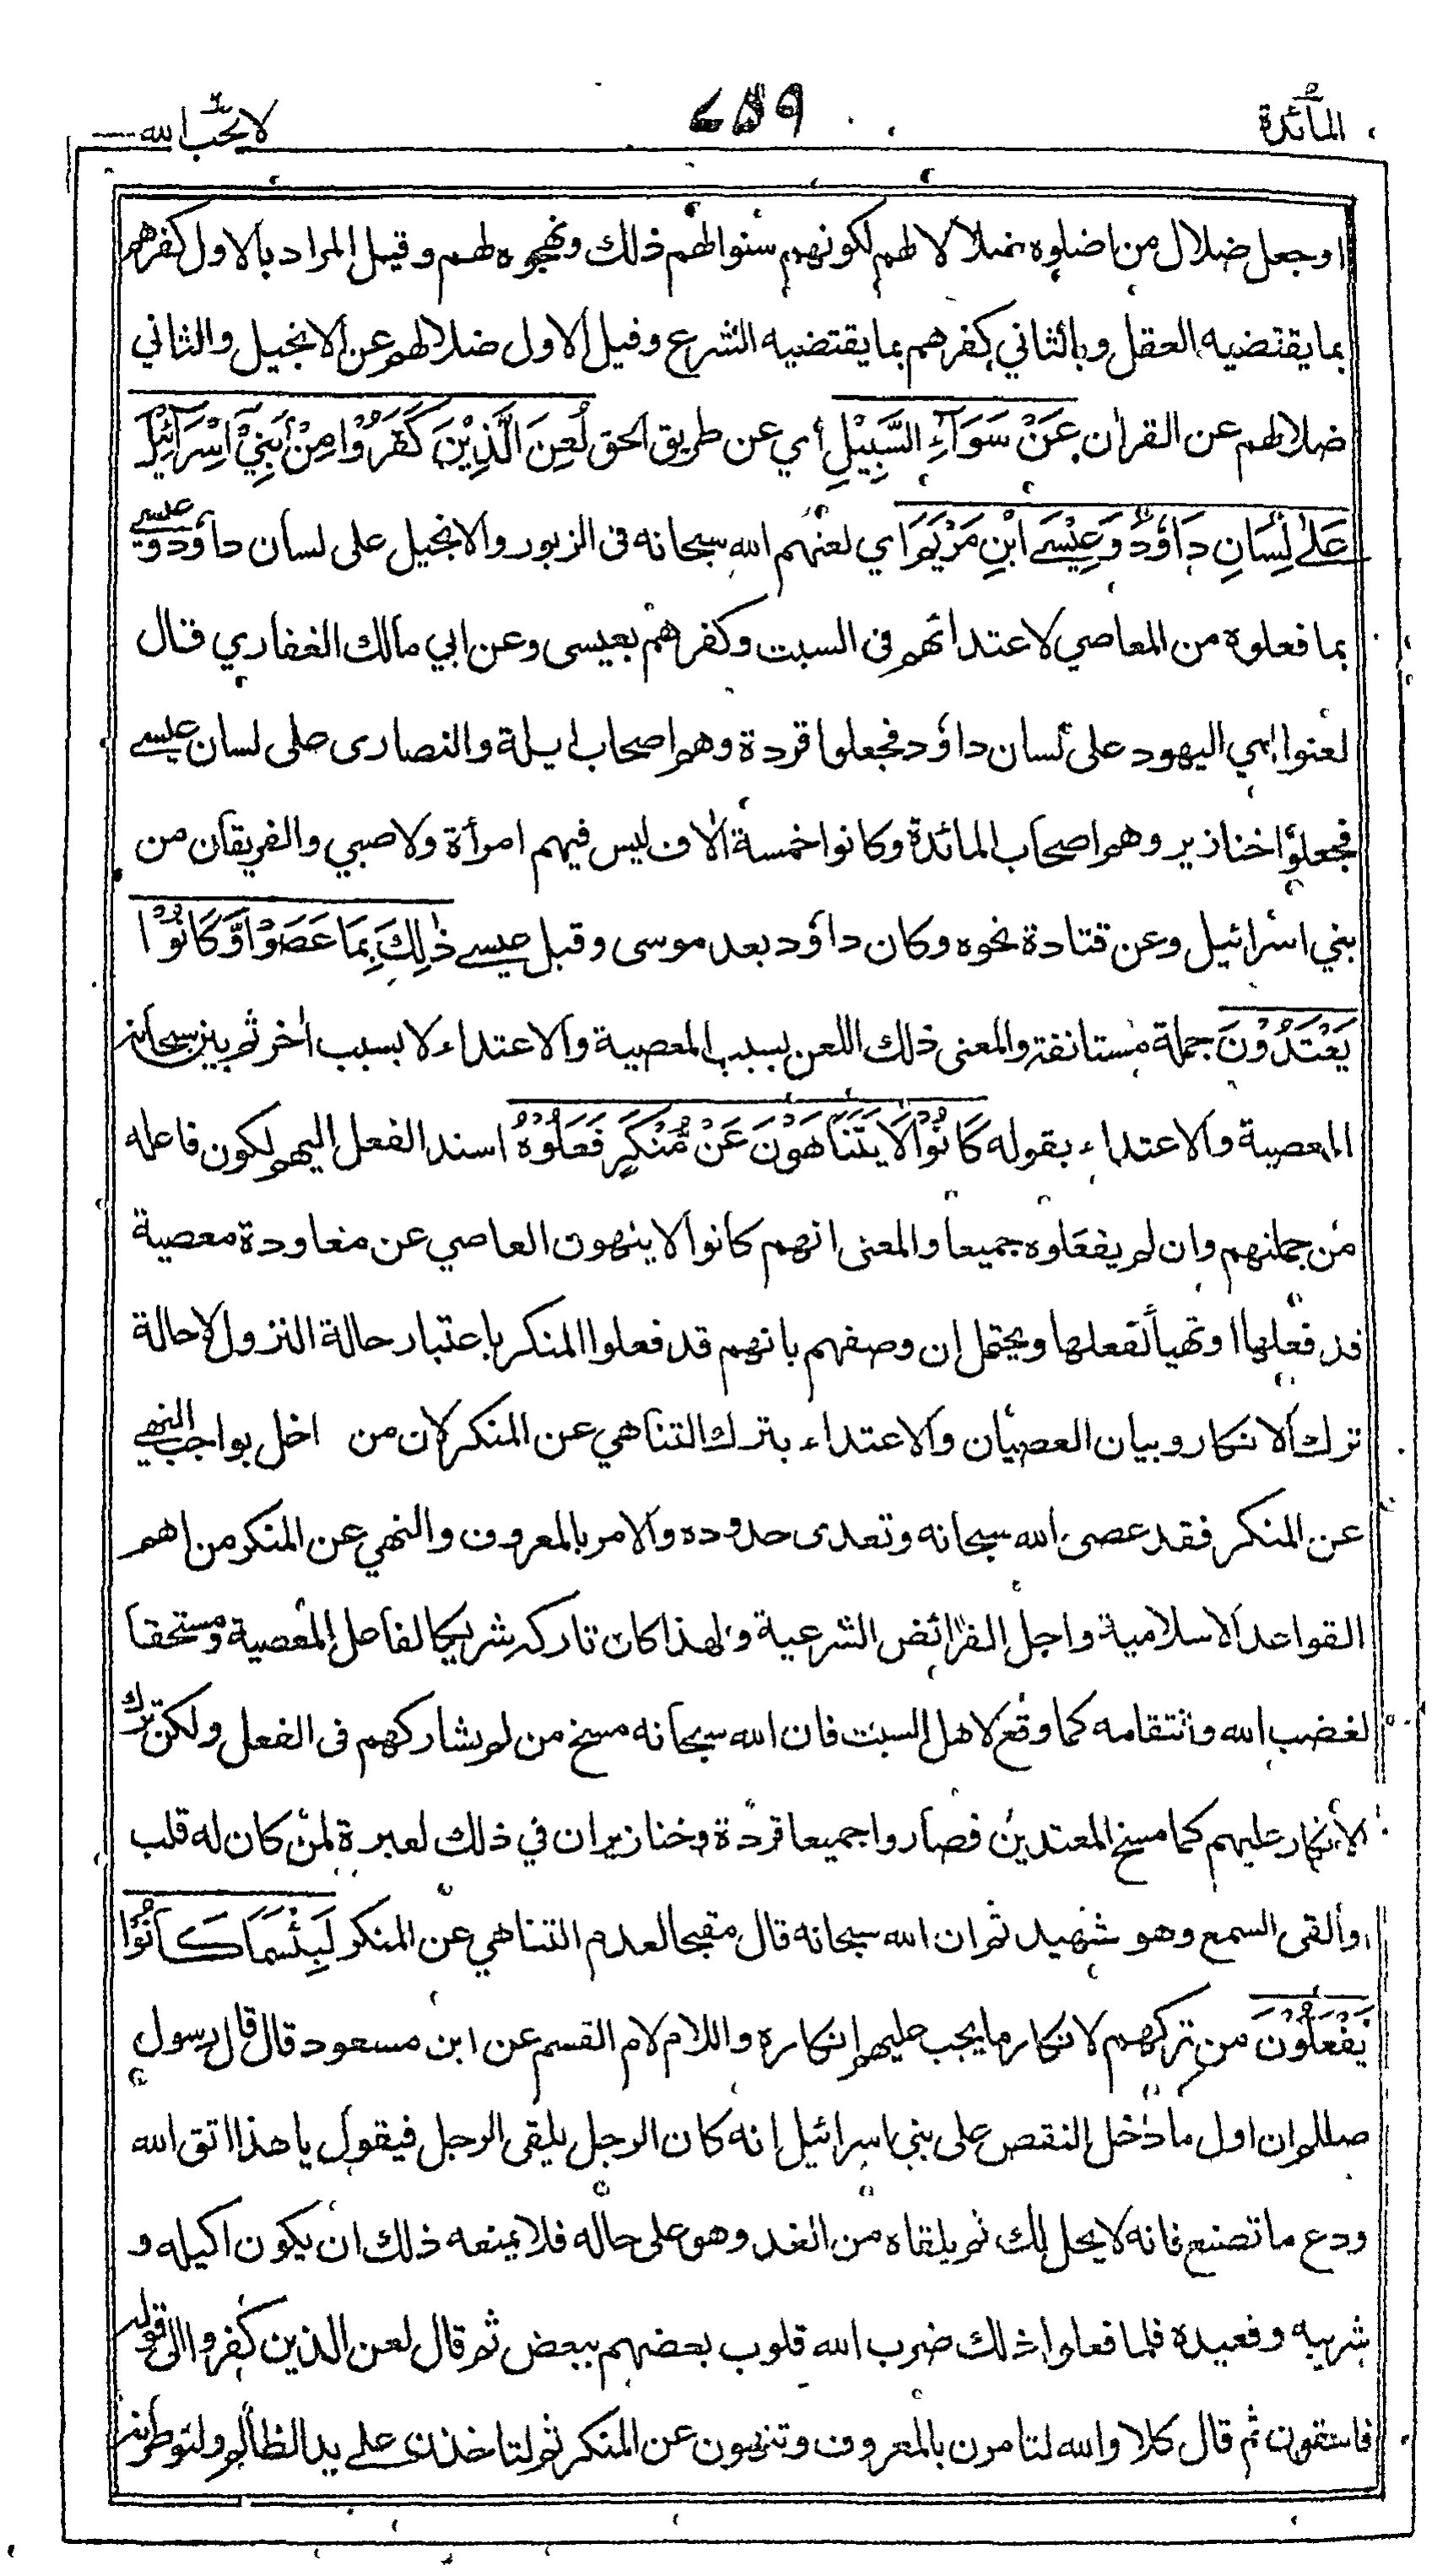 المائدة
٤٥٩
لا يحب الله
او جعل ضلال من اضلوه ضلالا لهم لكونهم سنوا لهم ذلك ونهجوه لهم وقيل المراد بالاول كفرهم
بما يقتضيه العقل وبالثاني كفرهم بما يقتضيه الشرع وقيل الاول ضلالهم عن الانجيل والثاني
ضلالهم عن القران عَنْ سَوَآءِ السَّبِيْلِ أي عن طريق الحق لُعِنَ الَّذِيْنَ كَفَرُوْا مِنْ بَنِيْٓ اِسْرَآئِيْلَ
عَلٰى لِسَانِ دَاوٗدَ وَعِيْسَى ابْنِ مَرْيَمَ اي لعنهم الله سبحانه فى الزبور والانجيل على لسان داؤد وعيسى
بما فعلوة من المعاصي لاعتدائهم فى السبت وكفرهم بعيسى وعن ابي مالك الغفاري قال
لعنوا اي اليهود على لسان داؤد فجعلوا قردة وهم اصحاب ايلة والنصارى على لسان عيسى
فجعلوا خنازير وهم اصحاب المائدة وكانوا خمسة الاف ليس فيهم امرأة ولا صبي والفريقان من
بني اسرائيل وعن قتادة نحوه وكان داؤد بعد موسى وقبل عيسى ذٰلِكَ بِمَا عَصَوْا وَّكَانُوْا
يَعْتَدُوْنَ جملة مستانفة والمعنى ذلك اللعن بسبب المعصية والاعتداء لا بسبب اخر ثم بين سبحانه
المعصية والاعتداء بقوله كَانُوْا لَا يَتَنَاهَوْنَ عَنْ مُّنْكَرٍ فَعَلُوْهُ اسند الفعل اليهم لكون فاعله
من جملتهم وان لم يفعلوه جميعا والمعنى انهم كانوا لا ينهون العاصي عن معاودة معصية
قد فعلها او تهيأ لفعلها ويحتمل ان وصفهم بانهم قد فعلوا المنكر باعتبار حالة النزول لا حالة
ترك الانكار وبيان العصيان والاعتداء بترك التناهي عن المنكر لان من اخل بواجب النهي
عن المنكر فقد عصى الله سبحانه وتعدى حدوده والامر بالمعروف والنهي عن المنكر من اهم
القواعد الاسلامية واجل الفرائض الشرعية ولهذا كان تاركه شريكا لفاعل المعصية ومستحقا
لغضب الله وانتقامه كما وقع لاهل السبت فان الله سبحانه مسخ من لم يشاركهم فى الفعل ولكن ترك
الانكار عليهم كما مسخ المعتدين فصاروا جميعا قردة وخنازير ان في ذلك لعبرة لمن كان له قلب
او القى السمع وهو شهيد ثم ان الله سبحانه قال مقبحا لعدم التناهي عن المنكر لَبِئْسَمَا كَانُوْا
يَفْعَلُوْنَ من تركهم لانكار ما يجب عليهم انكاره واللام لام القسم عن ابن مسعود قال قال رسول
صللم ان اول ما دخل النقص على بني اسرائيل انه كان الرجل يلقى الرجل فيقول يا هذا اتق الله
ودع ما تصنع فانه لا يحل لك ثم يلقاه من الغد وهو على حاله فلا يمنعه ذلك ان يكون اكيله و
شريبه وقعيده فلما فعلوا ذلك ضرب الله قلوب بعضهم ببعض ثم قال لعن الذين كفروا الى قوله
فاسقون ثم قال كلا والله لتامرن بالمعروف وتنهون عن المنكر ثم لتاخذن على يد الظالم ولتوطرنه